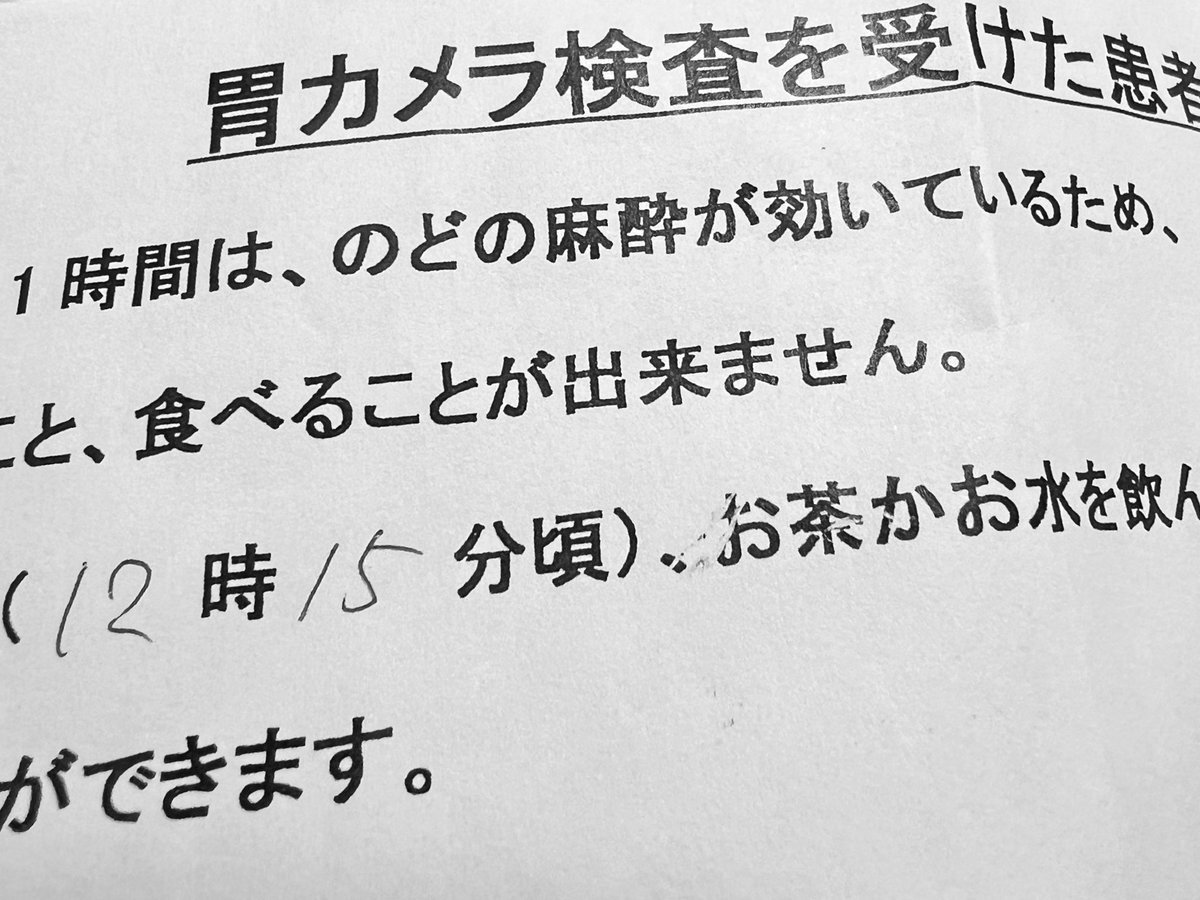 胃カメラ検査を受けた患者
1時間は、のどの麻酔が効いているため、
こと、食べることが出来ません。
(12時15分頃)、お茶かお水を飲ん
ができます。